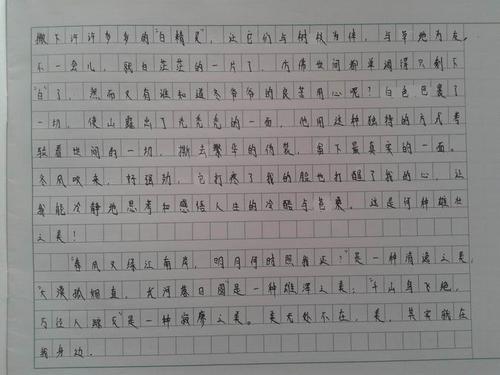 撒下许许多多的"白精灵",让它们与树枝为伴,与草地为友。
不一会儿,就白茫茫的一片了,仿佛世间都单调得只剩下
"白"了,然而又有谁知道冬爷爷的良苦用心呢?白色包裹了
一切,使山露出了光秃秃的一面,他用这种独特的方式考
验着世间的一切,撕去繁华的伪装,留下最真实的一面。
冬风吹来,好强劲,它打疼了我的脸也打醒了我的心,让
我能冷静地思考和感悟人生的冷酷与苍衰。这是何种雄壮
之美!
"春风又绿江南岸,明月何时照我还?"是一种清远之美,
"大漠孤烟直,长河落日圆"是一种雄浑之美;"千山鸟飞绝,
万径人踪灭"是一种寂寥之美。美无处不在,美,其实就在
我身边.